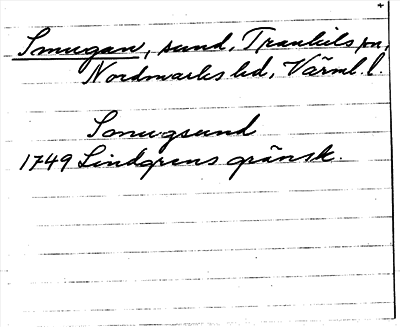 Smugan, sund, Trankils sn,
Nordmarks hd, Värml. l.
Smugsund
1749 Lindgrens gränsk.